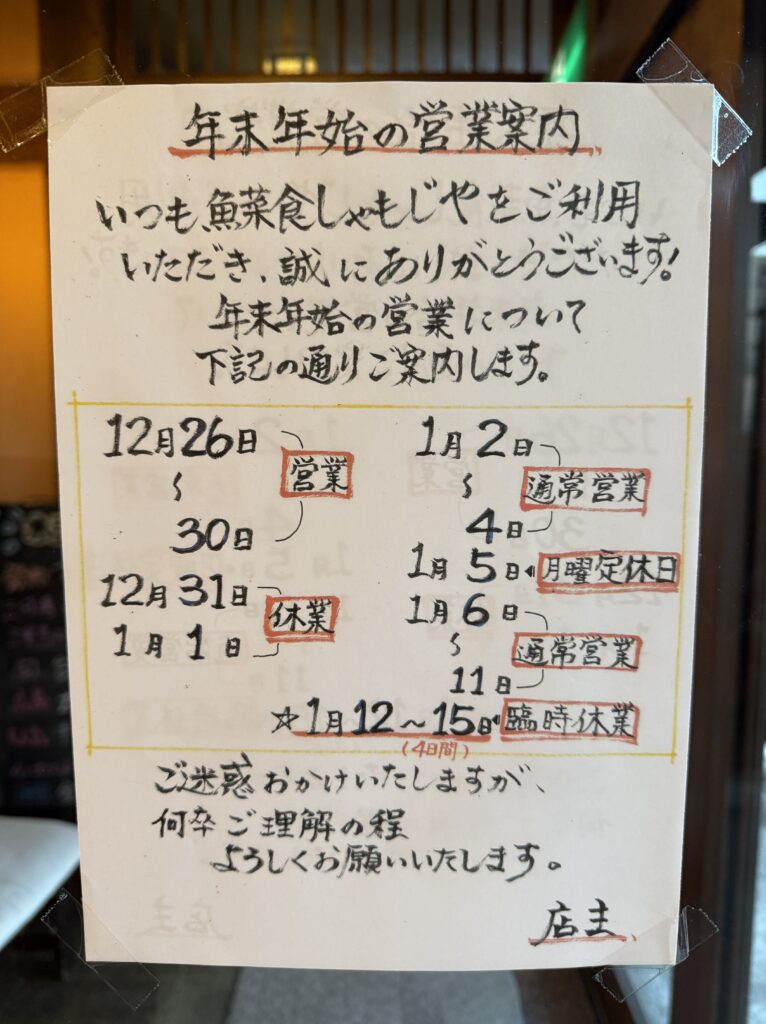 年末年始の営業案内
いつも、魚菜食しゃもじやをご利用
いただき、誠にありがとうございます!
年末年始の営業について
下記の通りご案内します。
12月26日
〜
30日
営業
12月31日
1月1日
休業
1月2日
〜
4日
通常営業
1月5日 月曜定休日
1月6日
〜
11日
通常営業
☆1月12〜15日 臨時休業
(4日間)
ご迷惑おかけいたしますが、
何卒ご理解の程
よろしくお願いいたします。
店主